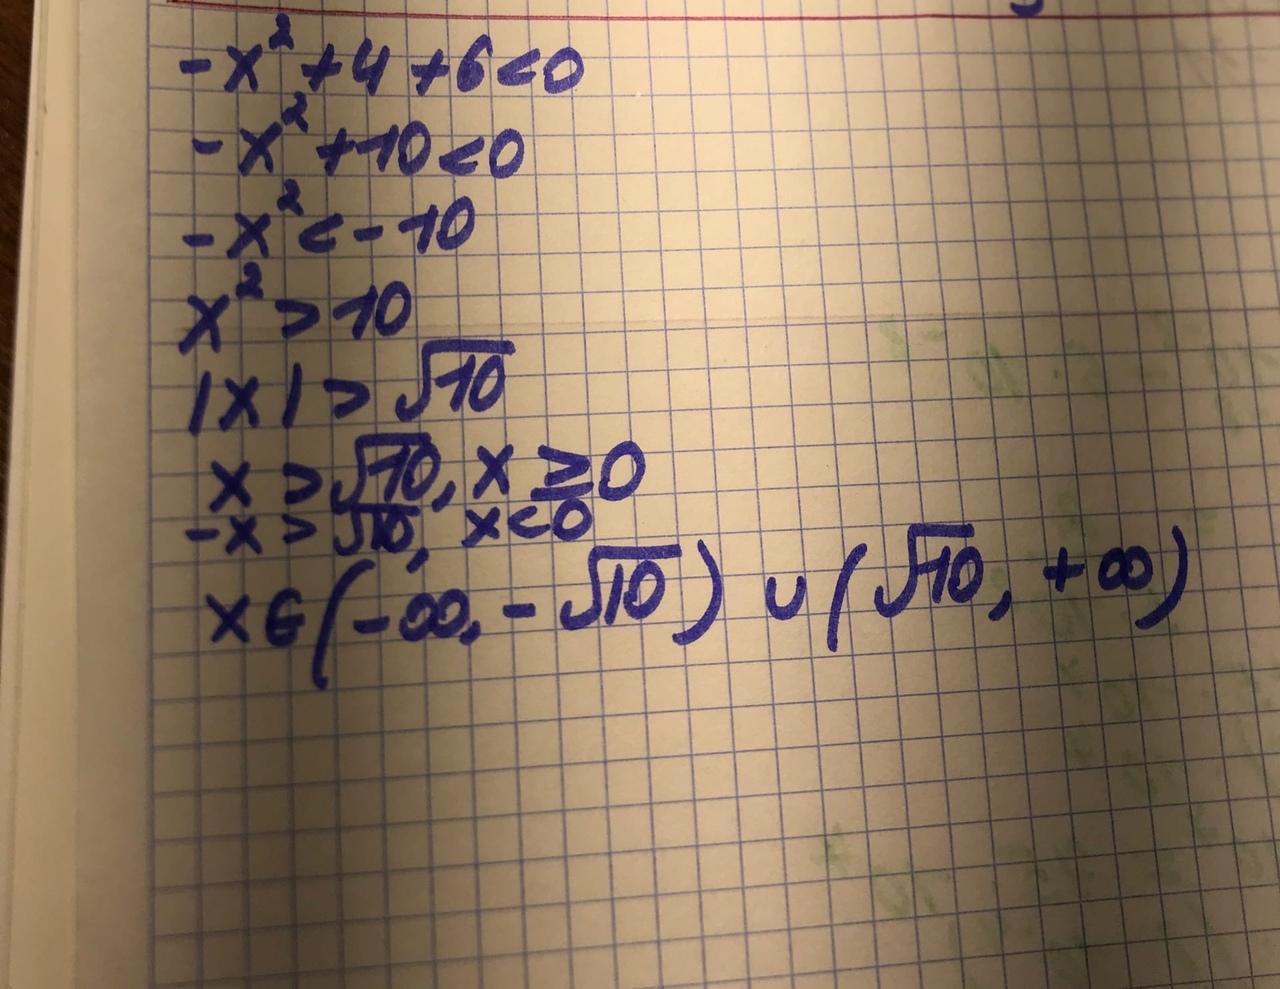 -x²+4+6<0
-x²+10<0
-x²<-10
x²>10
|x|>√10
x>√10, x≥0
-x>√10, x<0
x∈(-∞,-√10)∪(√10,+∞)